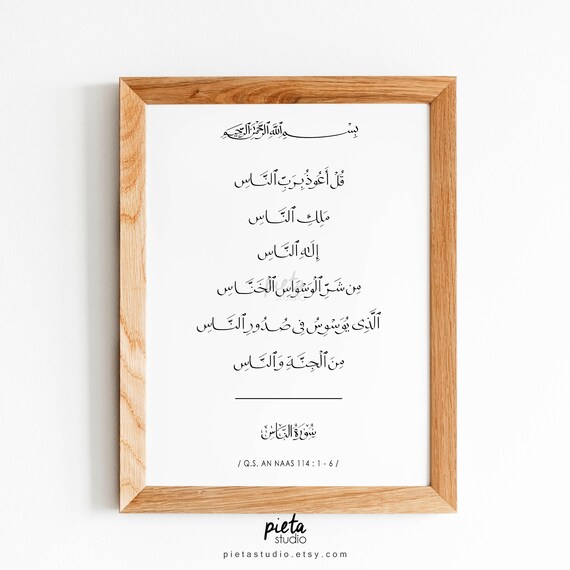 بِسْمِ ٱللَّهِ ٱلرَّحْمَٰنِ ٱلرَّحِيمِ
قُلْ أَعُوذُ بِرَبِّ ٱلنَّاسِ
مَلِكِ ٱلنَّاسِ
إِلَٰهِ ٱلنَّاسِ
مِن شَرِّ ٱلْوَسْوَاسِ ٱلْخَنَّاسِ
ٱلَّذِى يُوَسْوِسُ فِى صُدُورِ ٱلنَّاسِ
مِنَ ٱلْجِنَّةِ وَٱلنَّاسِ
سُورَةُ النَّاسِ
/ Q.S. AN NAAS 114 : 1 - 6 /
pieta
studio
pietastudio.etsy.com